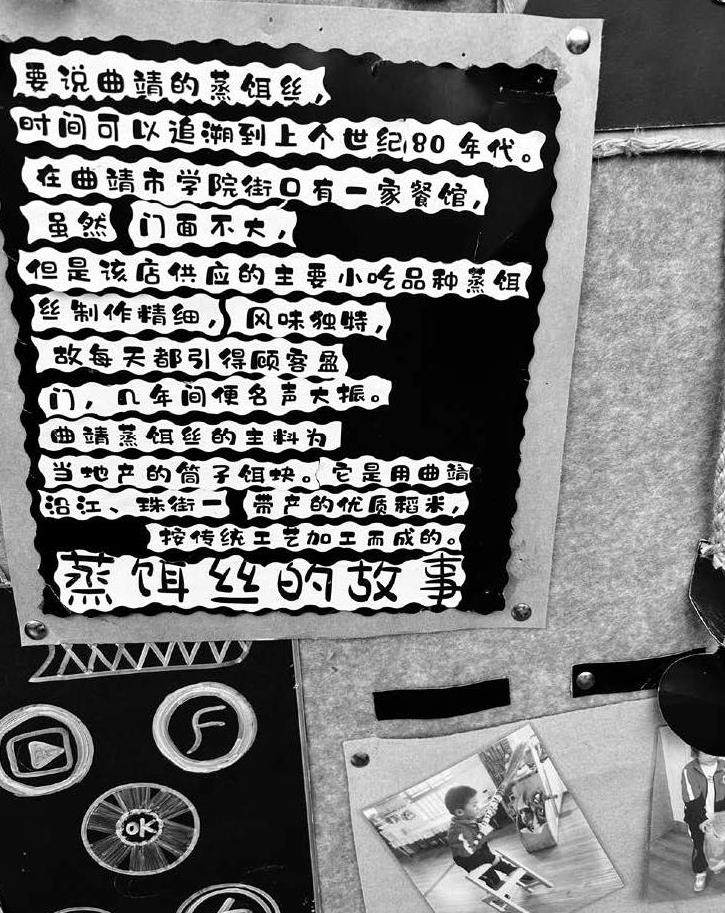 要说曲靖的蒸饵丝，
时间可以追溯到上个世纪80年代。
在曲靖市学院街口有一家餐馆，
虽然 门面不大，
但是该店供应的主要小吃品种蒸饵
丝制作精细， 风味独特，
故每天都引得顾客盈
门，几年间便名声大振。
曲靖蒸饵丝的主料为
当地产的筒子饵块。它是用曲靖
沿江、珠街一 带产的优质稻米，
按传统工艺加工而成的。
蒸饵丝的故事
F
OK